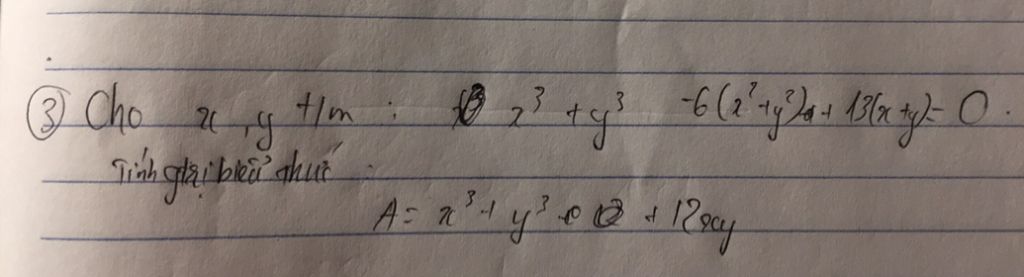 ③ Cho x, y t/m : x³ + y³ -6(x²+y²) + 13(x+y) = 0.
Tính giá trị biểu thức :
A = x³ + y³ + 12xy